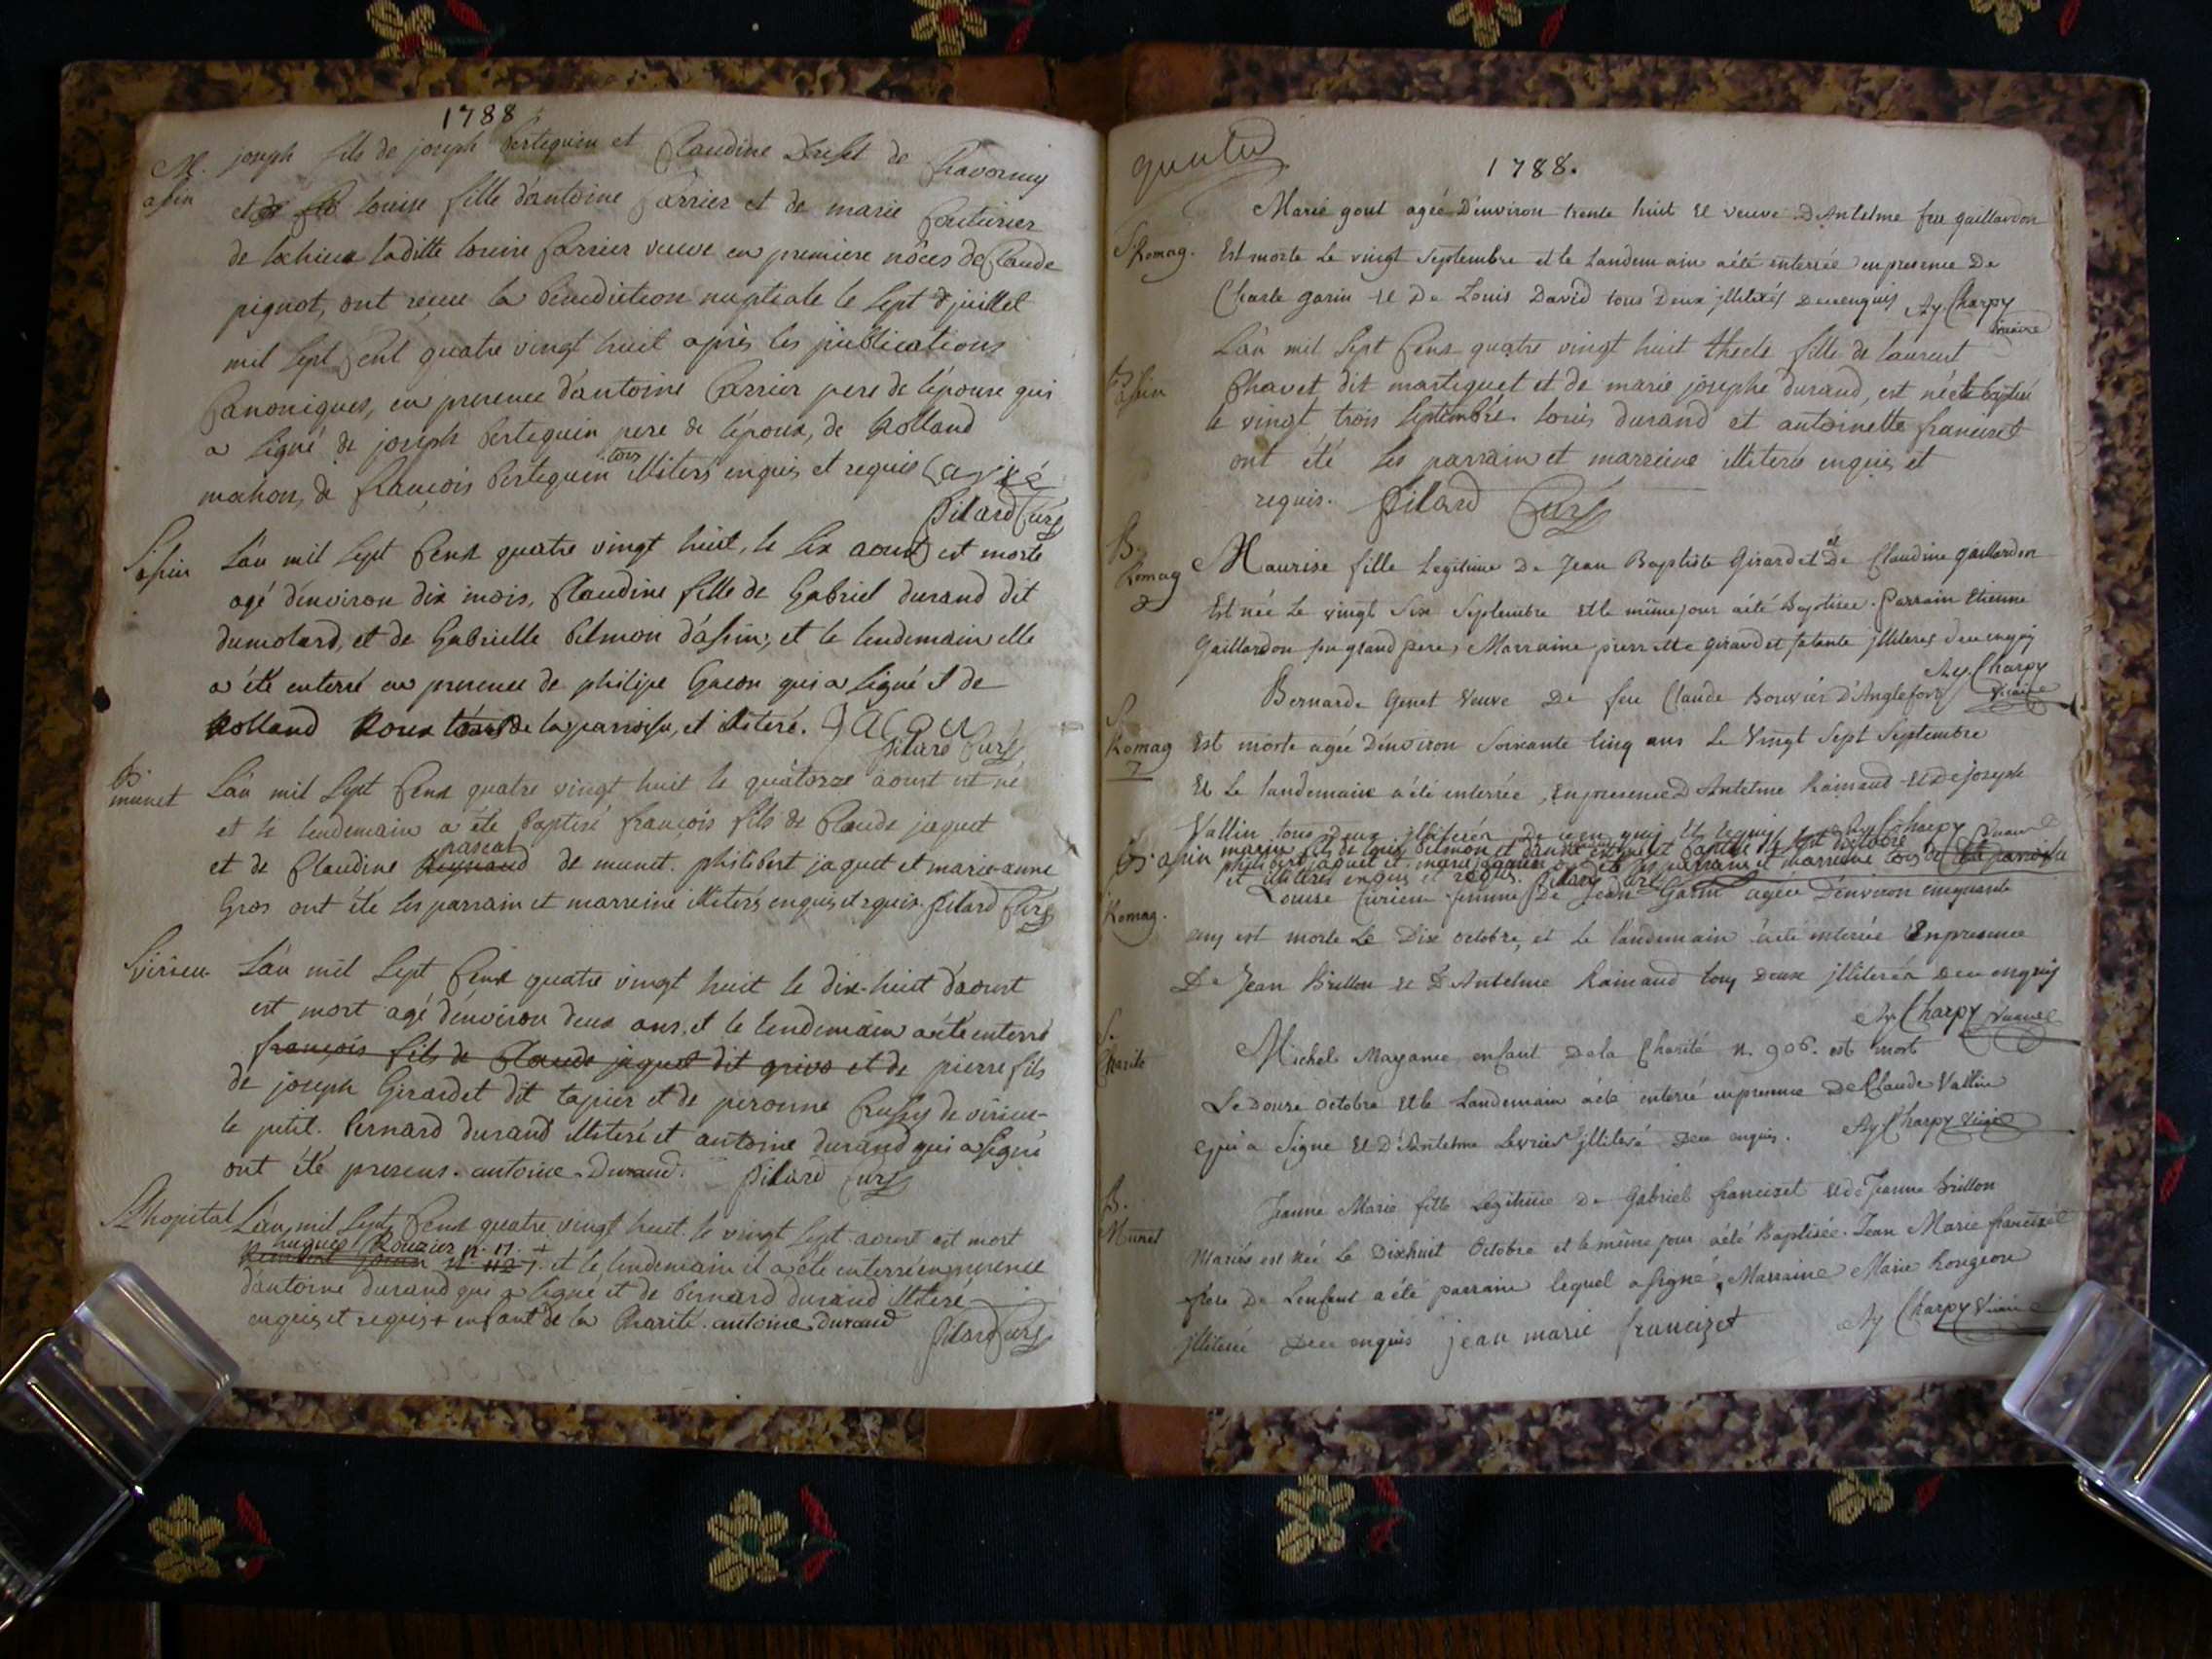 1788
M. joseph fils de joseph Berlequin et Claudine de Chavornay
asin et louise fille d'antoine Carrier et de marie Couturier
de lachieu laditte louise Carrier veuve en premiere nôces de Claude
pignot, ont reçue la benediction nuptiale le sept juillet
mil sept cent quatre vingt huit après les publications
Canoniques, en presence d'antoine Carrier pere de l'epouse qui
a signé de joseph Berlequin pere de l'époux, de Rolland
mahon, de françois Berlequin tous illiterés enquis et requis
Pilard Curé
S. asin L'an mil sept Cent quatre vingt huit, le six aoust est morte
agé d'environ dix mois, Claudine fille de Gabriel durand dit
dumolard, et de Gabrielle Belmon d'asin, et le lendemain elle
a été enterré en presence de philipe Gacon qui a signé et de
Rolland Roux de la paroisse, et illiteré. gacon
Pilard Curé
B. munet L'an mil sept Cent quatre vingt huit le quatorze aoust est né
et le lendemain a été baptisé françois fils de Claude jaquet
pascal
et de Claudine Reynaud de munet. philibert jaquet et marie-anne
Gros ont été les parrain et marreine illiterés enquis et requis. Pilard Curé
S. virieu L'an mil sept Cent quatre vingt huit le dix-huit d'aoust
est mort agé d'environ deux ans, et le lendemain a été enterré
françois fils de Claude jaquet dit grivo et de pierre fils
de joseph Girardet dit tapier et de peronne Crussy de virieu-
le petit. Bernard durand illiteré et antoine durand qui a signé
ont été presens. antoine Durand. Pilard Curé
S. hopital L'an mil sept Cent quatre vingt huit le vingt sept aoust est mort
hugues Rouzier n. 17. +
n. 112 et le lendemain il a été enterré en presence
d'antoine durand qui a signé et de Bernard durand illiteré
enquis et requis + enfant de la Charité. antoine Durand Pilard Curé
1788.
Marie gout agée D'environ trente huit et veuve D'Antelme feu gaillardon
S. Romag. Est morte Le vingt Septembre et le Landemain a été enterrée en presence De
Charle garin et De Louis David tous Deux jlliterés Deuenquis Ay. Charpy
vicaire
L'an mil sept Cent quatre vingt huit thecle fille de laurent
B. asin Chavet dit martiguet et de marie josephe durand, est née et baptisée
le vingt trois septembre. louis durand et antoinette francizet
ont été les parrain et marreine illiterés enquis et
requis. Pilard Curé
B. Romag Maurise fille Legitime De Jean Baptiste Girardet et De Claudine gaillardon
Est née Le vingt Six Septembre et le même jour a été Baptisée. Parrain Etienne
Gaillardon son grand pere, Marraine pierrette girardet sa tante jlliteres deu enquis
Ay. Charpy
vicaire
Bernarde Genet Veuve De feu Claude Bouvier D'Anglefort
S. Romag Est morte agée D'environ Soixante Cinq ans Le Vingt Sept Septembre
7 Et Le landemain a été enterrée, En presence D'Antelme Raimand et De joseph
Vallin tous Deux jlliterés De ce enquis et requis Ay Charpy vicaire
B. asin marie fils de louis Belmon et le sept d'octobre
philibert jaquet et marie ont été les parrain et marreine tous de la paroisse
et illiterés enquis et requis. Pilard Curé
Louise Curieu femme De Jean Garin agée D'environ cinquante
Romag. ans est morte Le Dix octobre, et le landemain a été enterrée En presence
De Jean Brillon et D'Antelme Raimand tous Deux jlliterés deu enquis
Ay Charpy vicaire
S. Charité Michel Mayance enfant De la Charité n. 906. est mort
Le Douze Octobre et le Landemain a été enterré en presence De Claude Vallin
qui a Signé et D'Antelme Levrier jlliteré Deu enquis. Ay Charpy vicaire
B. Munet Jeanne Marie fille Legitime De Gabriel francizet et de Jeanne Brillon
Mariés est née Le Dixhuit Octobre et le même jour a été Baptisée. Jean Marie francizet
frère De Lenfant a été parrain lequel a signé, Marraine Marie Rongeon
jlliterée Deu enquis jean marie francizet Ay Charpy Vicaire